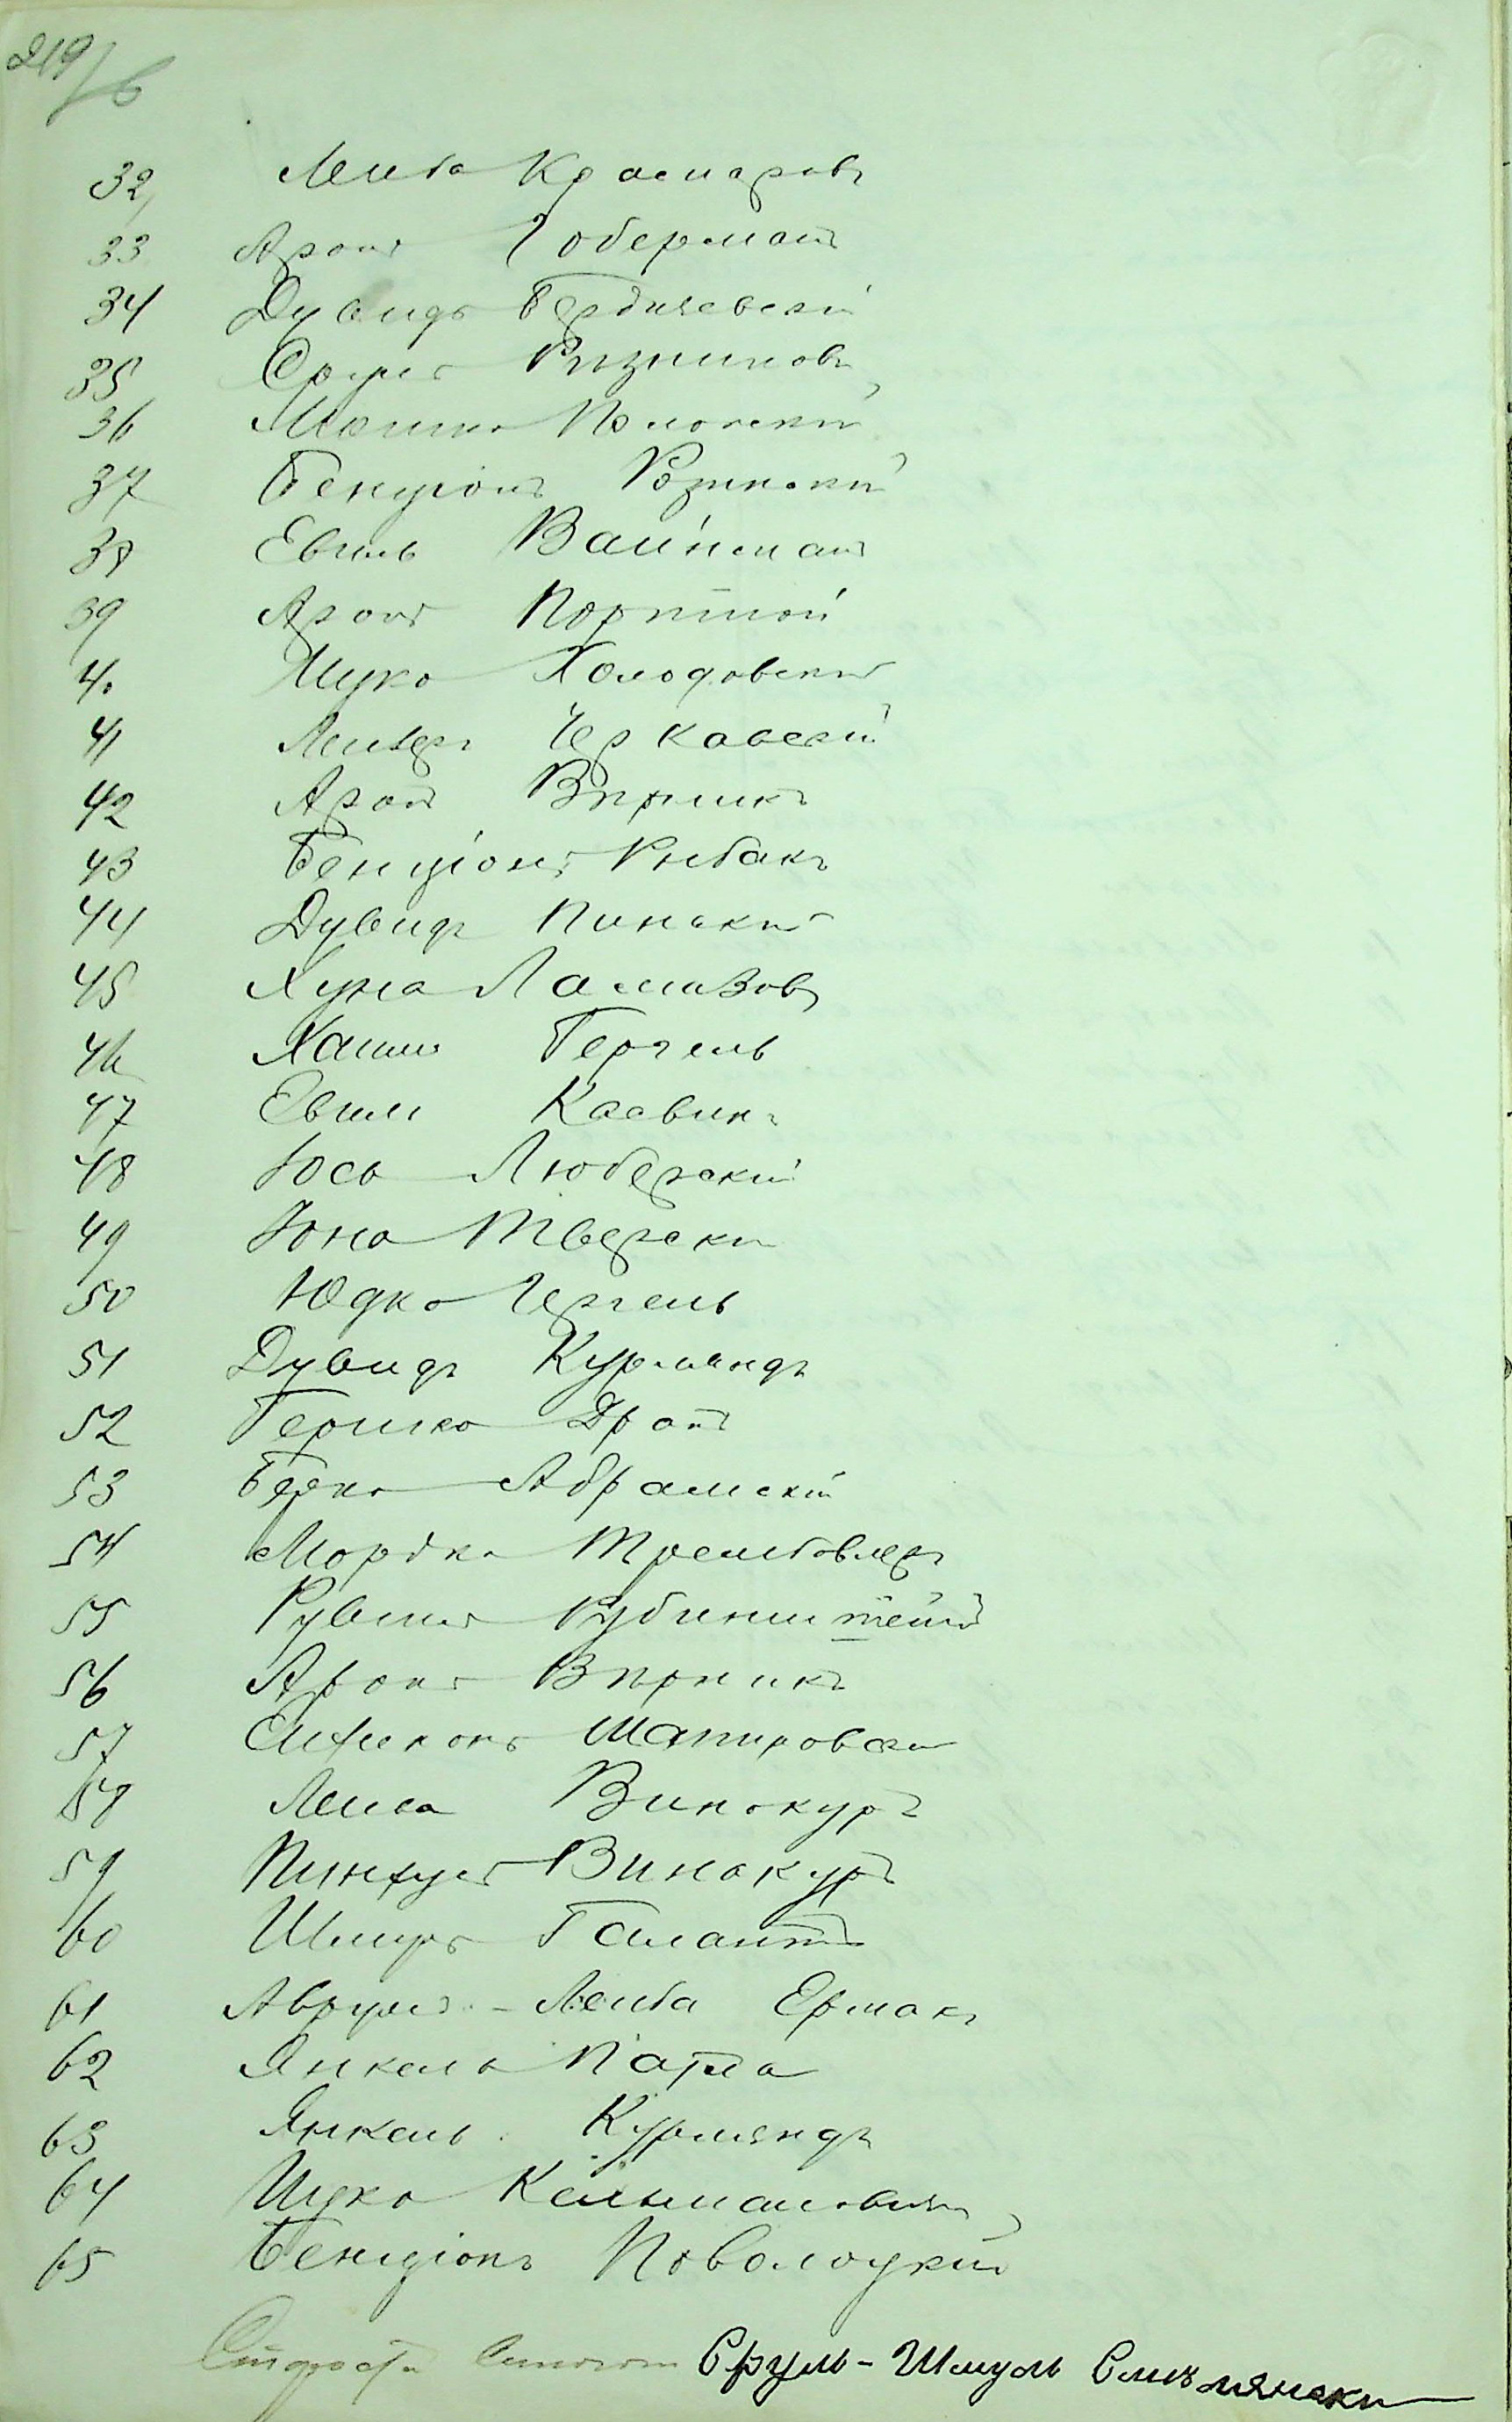 219/6
32, Лейба Краснеровъ
33 Аронъ Гоберманъ
34 Дувидъ Бердичевскій
35 Сруль Рѣзниковъ
36 Мошко Полонскій
37 Бенціонъ Розинскій
38 Евель Вайнманъ
39 Аронъ Портной
40 Ицко Холодовскій
41 Лейзеръ Черкавскій
42 Аронъ Вѣрникъ
43 Бенціонъ Рыбакъ
44 Дувидъ Пинскій
45 Хуна
46 Хаимъ Гергель
47 Евель
48 Іось Любарскій
49 Іона Тверски
50 Юдко Гергель
51 Дувидъ Курляндъ
52 Гершко Дранъ
53 Берко Абрамскій
54 Мордко Трембовлеръ
55 Рувинъ Рубинштейнъ
56 Аронъ Вѣрникъ
57 Шапировски
58 Лейба Винокуръ
59 Пинхусъ Винокуръ
60 Шлиора Галантъ
61 Аврумъ-Лейба Ермакъ
62 Янкель Папа
63 Янкель Курляндъ
64 Ицко Кельмановичъ
65 Бенціонъ Поволоцкій
Староста Сруль-Шмуль Смилянски